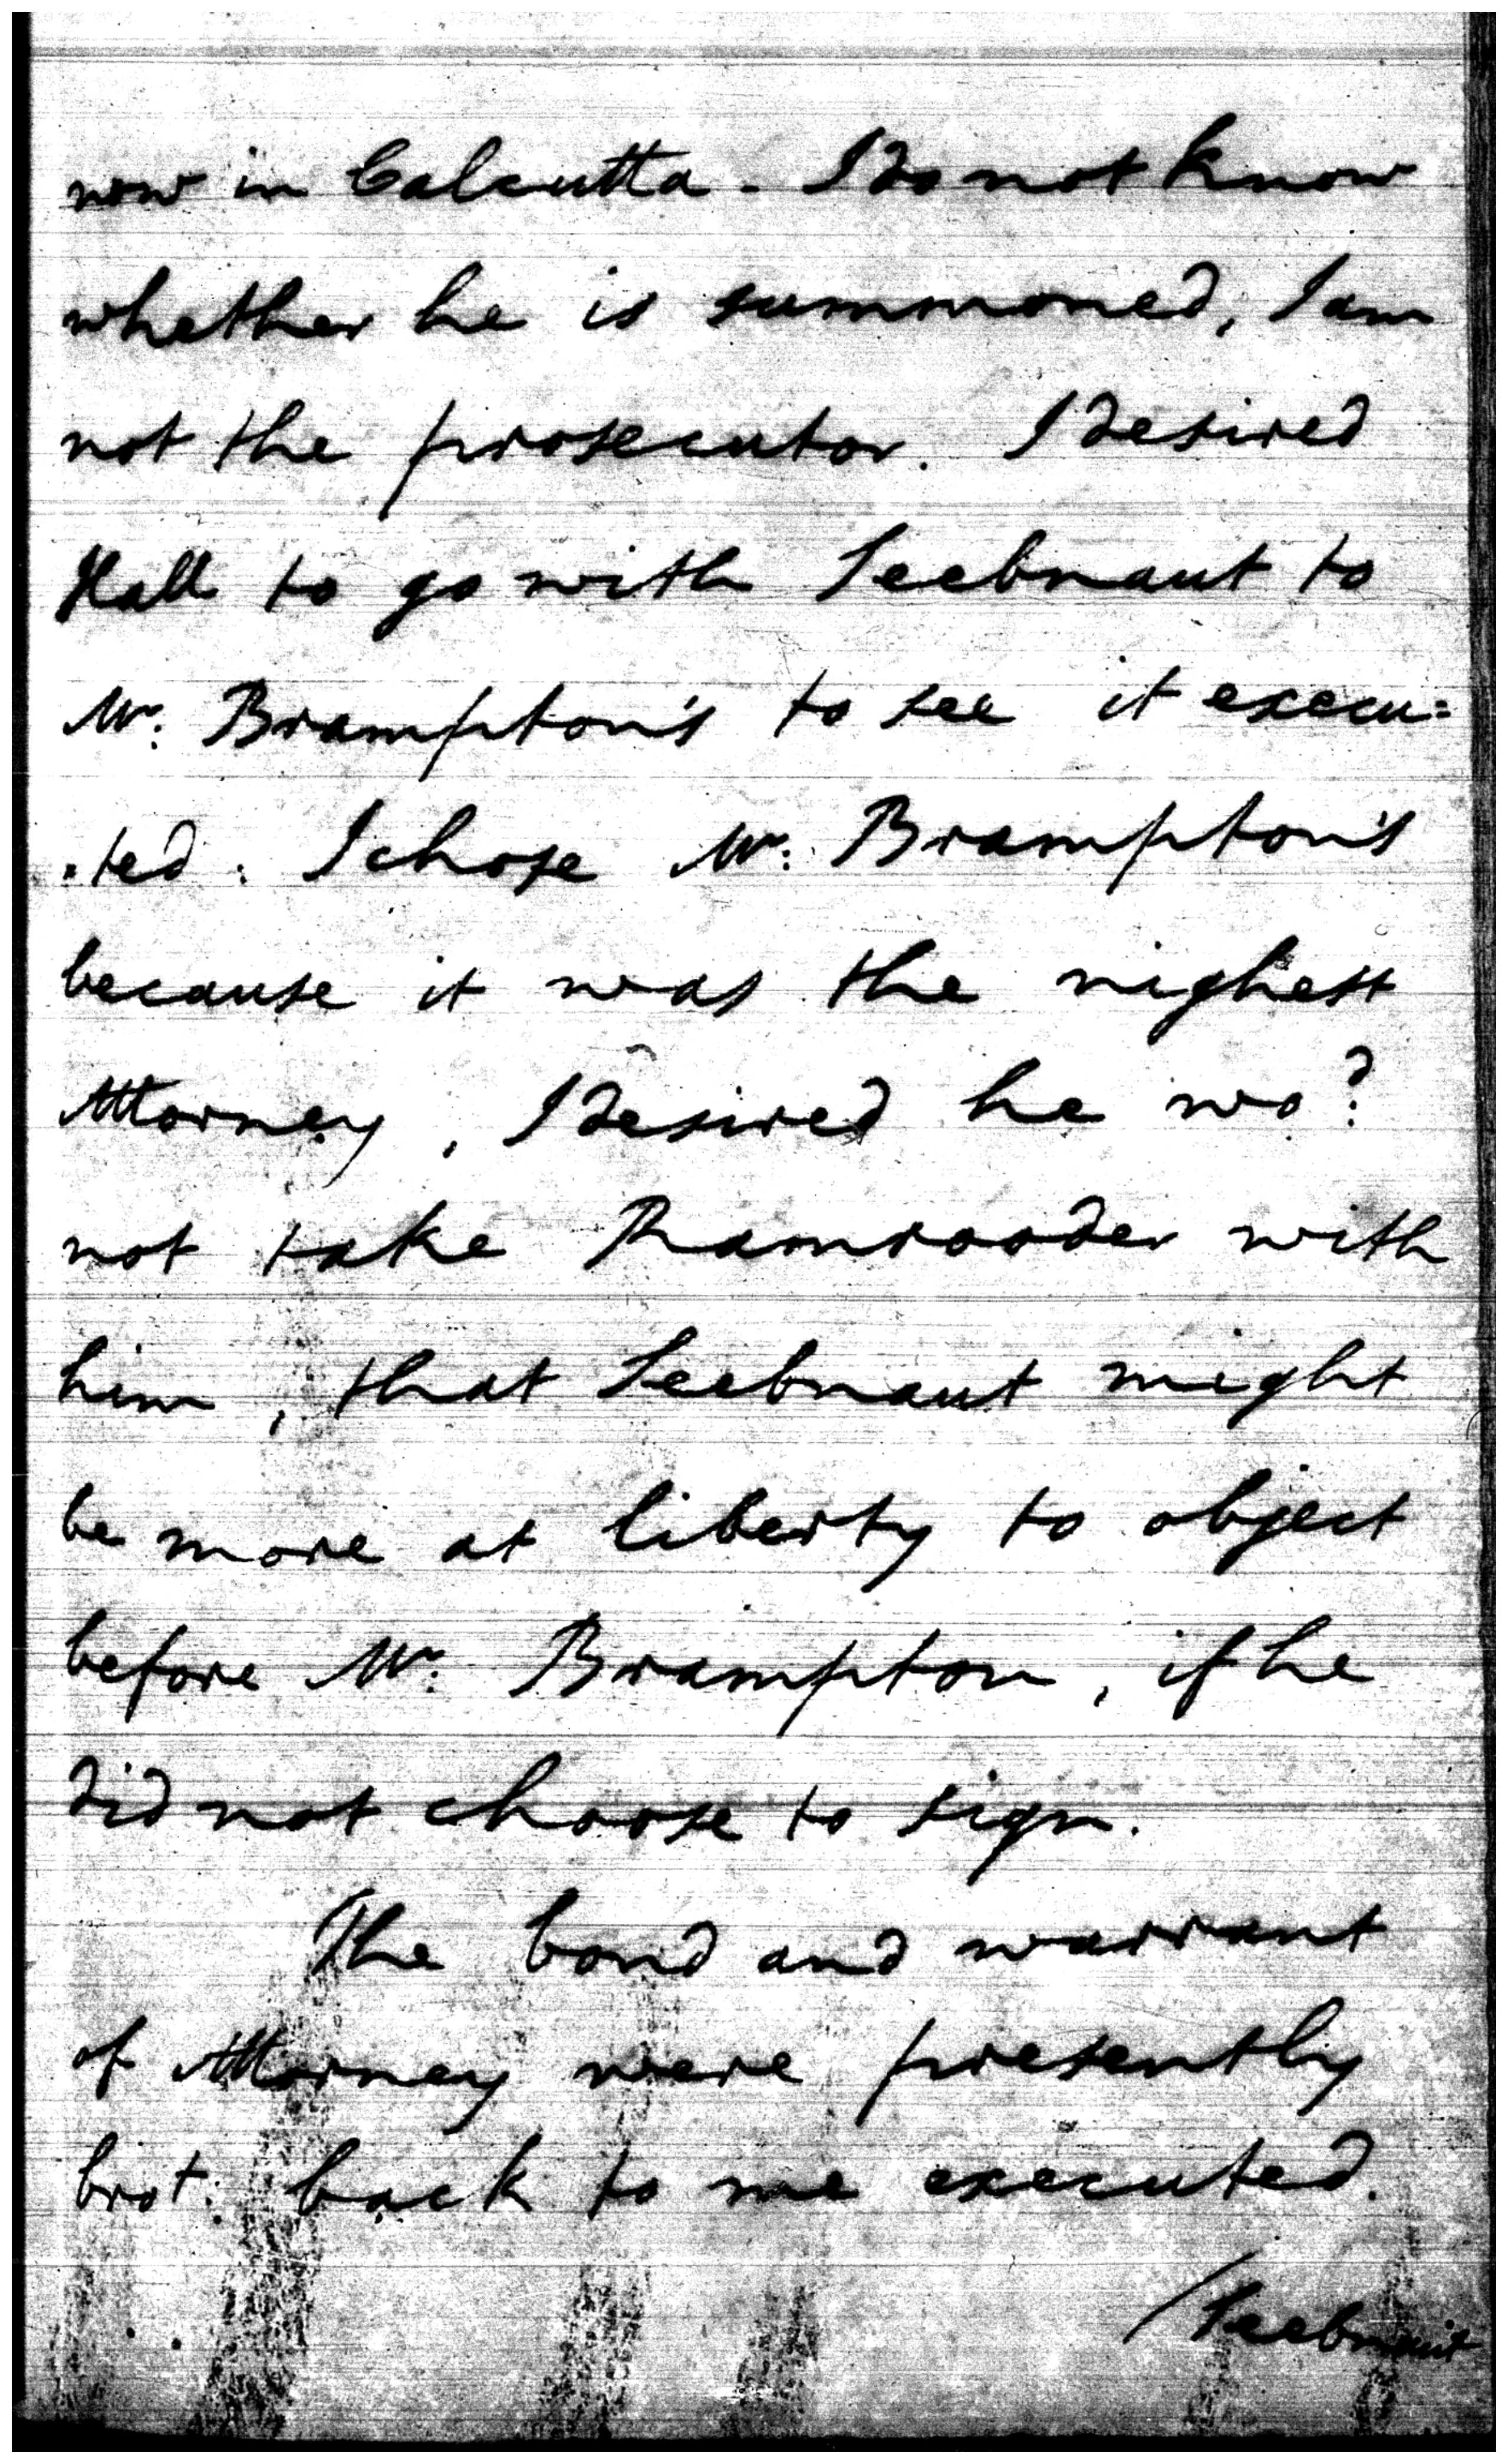 now in Calcutta - I do not know
whether he is summoned, I am
not the prosecutor. I desired
Hall to go with Seebnaut to
Mr. Brampton's to see it execu=
.ted. I chose Mr. Brampton's
because it was the nighest
Attorney, I desired he wod.
not take Ramrooder with
him, that Seebnaut might
be more at liberty to object
before Mr. Brampton, if he
did not choose to sign.
The bond and warrant
of Attorney were presently
brot. back to me executed.
/Seebnaut